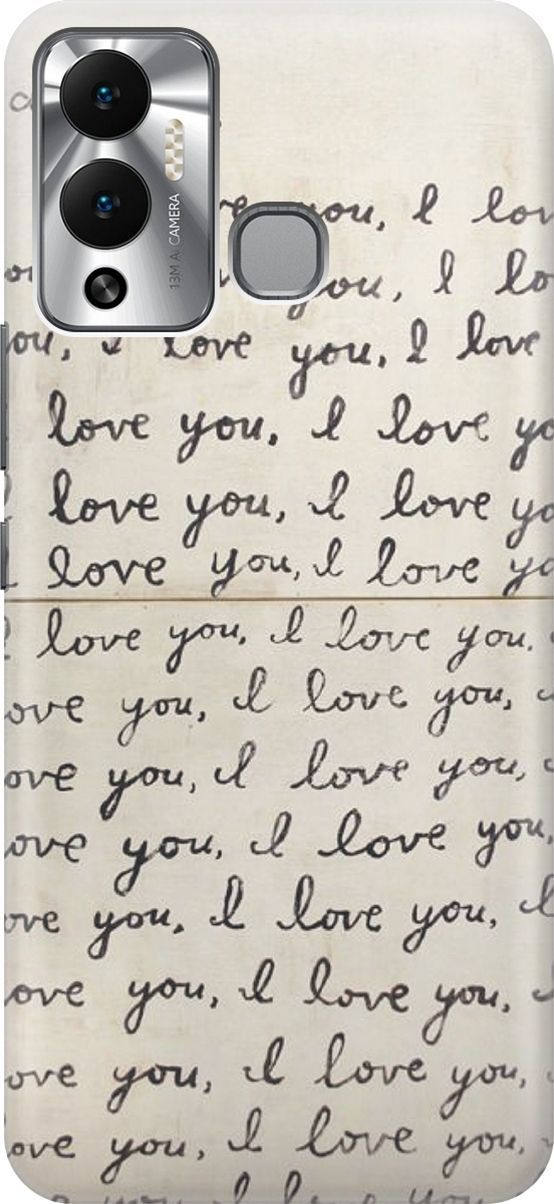 13M AI CAMERA
you, I lov
you, I lo
ou, I love you, I love
love you, I love yo
love you, I love yo
I love you, I love yo
I love you, I love you,
ove you, I love you,
ove you, I love you,
ove you, I love you,
ove you, I love you, I
ove you, I love you,
ove you, I love you,
ove you, I love you,
you, I love you